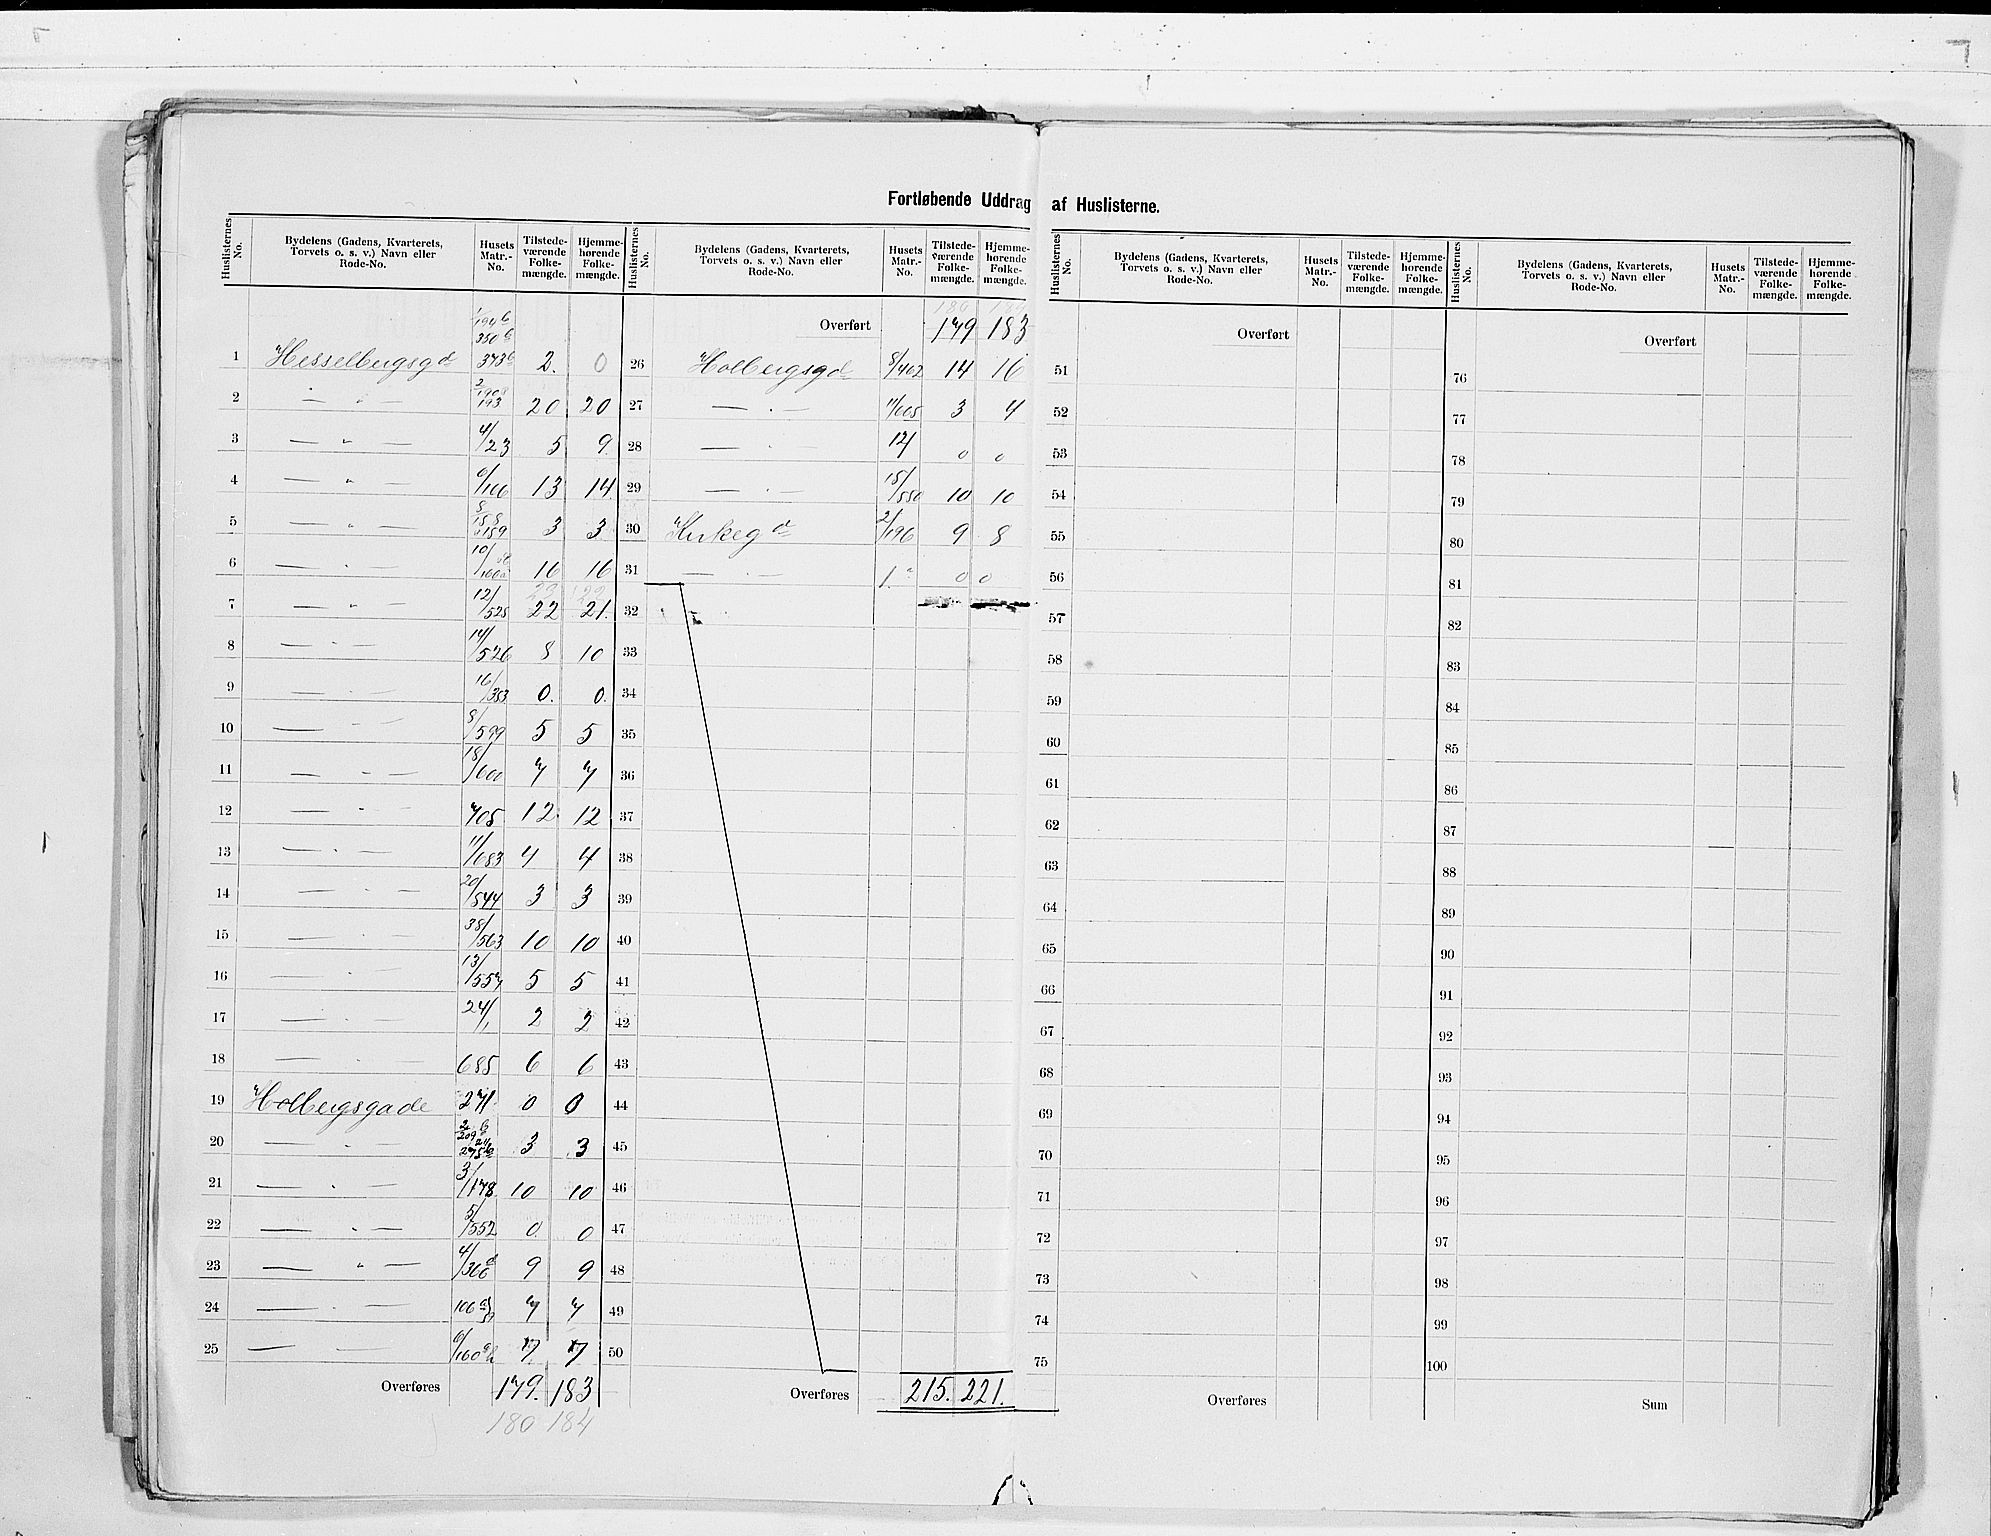 Fortløbende Uddrag af Huslisterne.
Huslisternes No. | Bydelens (Gadens, Kvarterets, Torvets o. s. v.) Navn eller Rode-No. | Husets Matr.-No. | Tilstedeværende Folkemængde. | Hjemmehørende Folkemængde.
1 Hesselbergsgd 373b 2. 0
2 — " — 193 20 20
3 — " — 4/23 5 9
4 — " — 6/106 13 14
5 — " — 8 158 159 3 3
6 — " — 10/160a 16 16
7 — " — 12/528 22 21.
8 — " — 14/526 8 10
9 — " — 16/353 0. 0.
10 — " — 8/599 5 5
11 — " — 18/600 7 7
12 — " — 705 12 12
13 — " — 11/683 4 4
14 — " — 20/544 3 3
15 — " — 38/563 10 10
16 — " — 13/557 5 5
17 — " — 24/1 2 2
18 — " — 685 6 6
19 Holbergsgade 271. 0 0
20 — " — 3 3
21 — " — 3/178 10 10
22 — " — 5/552 0. 0
23 — " — 4/366d 9 9
24 — " — 106 7 7
25 — — 6/160 7 7
Overføres 179. 183
180 184
Huslisternes No. | Bydelens (Gadens, Kvarterets, Torvets o. s. v.) Navn eller Rode-No. | Husets Matr.-No. | Tilstedeværende Folkemængde. | Hjemmehørende Folkemængde.
180
Overført 179 183
26 Holbergsgd 8/402 14 16
27 — " — 11/665 3 4
28 — " — 12/ 0 0
29 — " — 15/550 10 10
30 Kirkegd 2/196 9 8
31 — " — 1.a 0 0
32
33
34
35
36
37
38
39
40
41
42
43
44
45
46
47
48
49
50
Overføres 215. 221.
Huslisternes No. | Bydelens (Gadens, Kvarterets, Torvets o. s. v.) Navn eller Rode-No. | Husets Matr.-No. | Tilstedeværende Folkemængde. | Hjemmehørende Folkemængde.
Overført
51
52
53
54
55
56
57
58
59
60
61
62
63
64
65
66
67
68
69
70
71
72
73
74
75
Overføres
Huslisternes No. | Bydelens (Gadens, Kvarterets, Torvets o. s. v.) Navn eller Rode-No. | Husets Matr.-No. | Tilstedeværende Folkemængde. | Hjemmehørende Folkemængde.
Overført
76
77
78
79
80
81
82
83
84
85
86
87
88
89
90
91
92
93
94
95
96
97
98
99
100
Sum